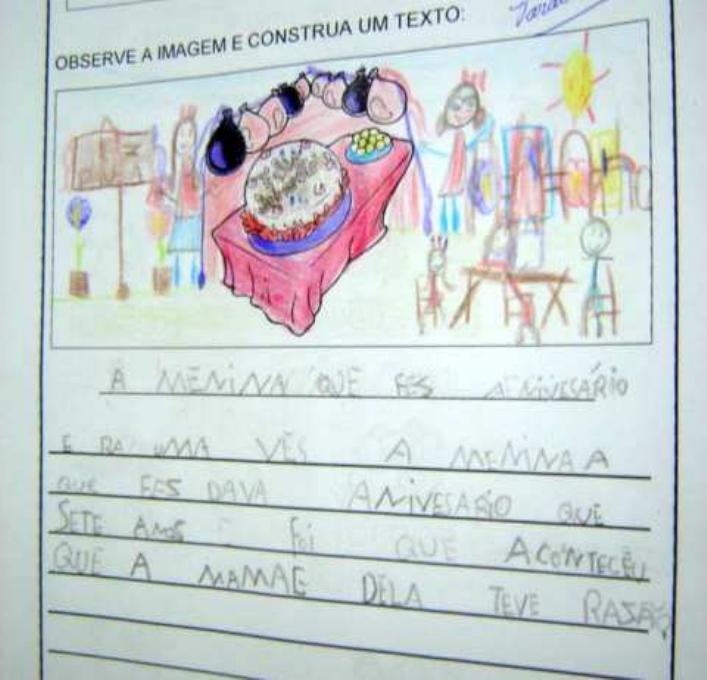 OBSERVE A IMAGEM E CONSTRUA UM TEXTO:
A MENINA QUE FES ANIVESÁRIO
E RA UMA VÊS A MENINA A
QUE FES DAVA ANIVESARIO QUE
SETE ANOS FOI QUE ACONTECEU
QUE A MAMAE DELA TEVE RASÃO